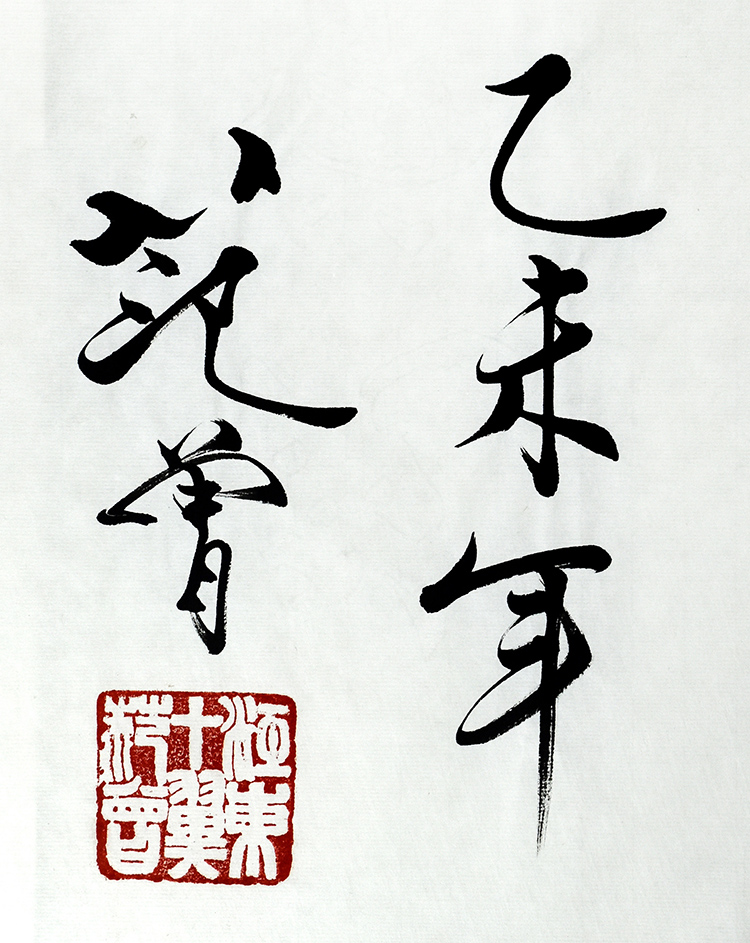 乙未年
范曾
江東
十翼
范曾